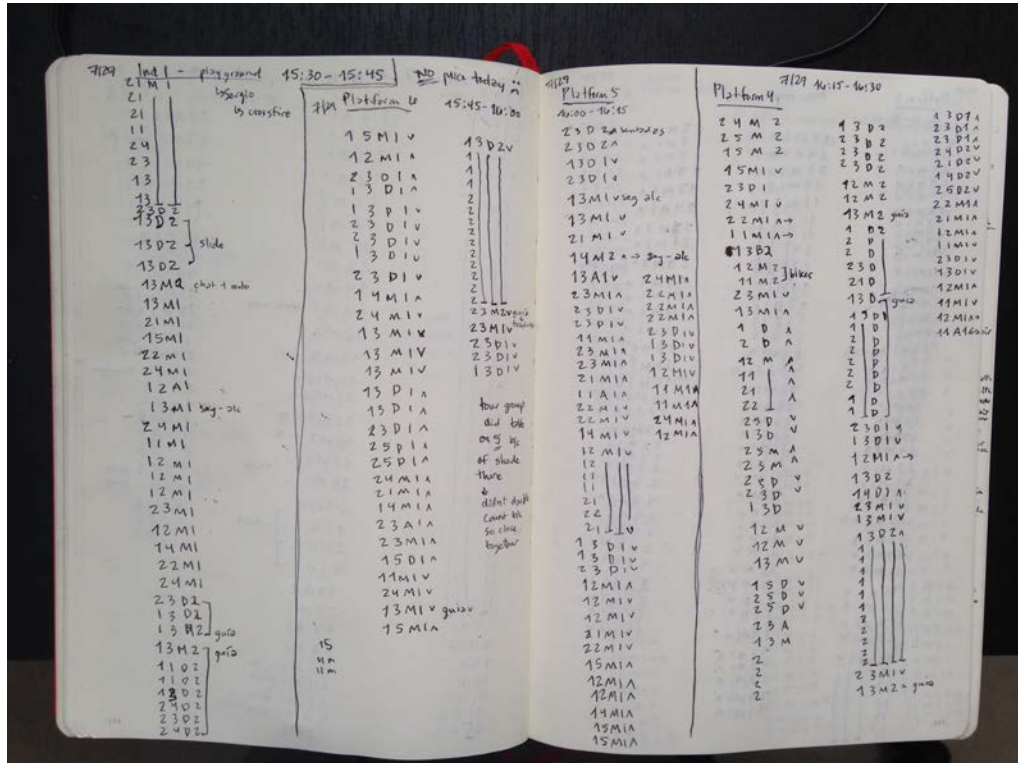 7/29 Ind 1 - playground 15:30-15:45
↳ Sergio
↳ crossfire
21 M 1
21
21
11
24
23
13
13
23 D 2
13 D 2
13 D 2 slide
13 D 2
13 M 2
13 M 1
21 M 1
15 M 1
22 M 1
24 M 1
12 A 1
13 M 1 seg-alc
24 M 1
11 M 1
12 M 1
12 M 1
12 M 1
23 M 1
12 M 1
14 M 1
22 M 1
24 M 1
23 D 2
13 D 2
13 M 2 guía
13 M 2 guía
11 D 2
11 D 2
13 D 2
24 D 2
23 D 2
24 D 2
NO pics today :(
7/29 Platform 6 15:45-16:00
15 M 1 v
12 M 1 ʌ
23 D 1 ʌ
13 D 1 ʌ
13 D 1 v
23 D 1 v
23 D 1 v
13 D 1 v
23 D 1 v
14 M 1 ʌ
24 M 1 v
13 M 1 v
13 M 1 v
13 M 1 v
13 D 1 ʌ
13 D 1 ʌ
23 D 1 ʌ
25 D 1 ʌ
25 D 1 ʌ
24 M 1 ʌ
21 M 1 ʌ
14 M 1 ʌ
23 A 1 ʌ
23 M 1 ʌ
15 D 1 ʌ
11 M 1 v
24 M 1 v
13 M 1 v guía v
15 M 1 ʌ
15
4m
11m
13 D 2 v
1
1
1
1
2
2
2
2
2
2
2
2
2
23 M 2 v guía
23 M 1 v
23 D 1 v
23 D 1 v
13 D 1 v
tour group
did talk
on 5 b/c
of shade
there
&
didn't
count b/c
so close
together
7/29
Platform 5
16:00-16:15
23 D 2 ʌ sentados
23 D 2 ʌ
13 D 1 v
23 D 1 v
13 M 1 v seg alc
13 M 1 v
21 M 1 v
14 M 2 ʌ → seg-alc
13 A 1 v
23 M 1 ʌ
23 D 1 v
23 D 1 v
11 M 1 ʌ
23 M 1 ʌ
23 M 1 ʌ
21 M 1 ʌ
11 A 1 ʌ
22 M 1 v
22 M 1 v
14 M 1 v
12 M 1 v
12
12
11
11
21
22
21 v
13 D 1 v
13 D 1 v
23 D 1 v
12 M 1 ʌ
12 M 1 v
12 M 1 v
21 M 1 v
22 M 1 v
15 M 1 ʌ
12 M 1 ʌ
12 M 1 ʌ
14 M 1 ʌ
15 M 1 ʌ
15 M 1 ʌ
24 M 1 ʌ
22 M 1 ʌ
22 M 1 ʌ
22 M 1 ʌ
23 D 1 v
13 D 1 v
13 D 1 v
12 M 1 v
11 M 1 ʌ
11 M 1 ʌ
24 M 1 ʌ
12 M 1 ʌ
Platform 4 7/29 16:15-16:30
24 M 2
25 M 2
15 M 2
15 M 1 v
23 D 1
24 M 1 v
22 M 1 ʌ →
11 M 1 ʌ →
13 B 2
12 M 2
11 M 2 bikes
23 M 1 v
13 M 1 ʌ
1 D ʌ
2 D ʌ
12 M ʌ
11 ʌ
21 ʌ
22 ʌ
25 D v
13 D v
25 M ʌ
23 M ʌ
23 D v
23 D v
13 D
12 M v
12 M v
13 M v
15 D v
25 D v
25 D v
23 A
13 M
2
2
2
2
13 D 2
23 D 2
23 D 2
23 D 2
12 M 2
12 M 2
13 M 2 guía
1 D 2
2 D
2 D
23 D
21 D
13 D guía
13 D
1 D
2 D
2 D
2 D
2 D
2 D
1 D
1 D
23 D 1 v
13 D 1 v
12 M 1 ʌ →
13 D 2
14 D 1 ʌ
23 M 1 v
13 M 1 v
13 D 2 ʌ
1
1
1
1
1
1
2
2
2
2
2
23 M 1 v
13 M 2 ʌ guía
13 D 1 ʌ
23 D 1 ʌ
23 D 1 ʌ
24 D 2 v
21 D 2 v
14 D 2 v
25 D 2 v
22 M 1 ʌ
21 M 1 ʌ
12 M 1 ʌ
11 M 1 v
23 D 1 v
13 D 1 v
12 M 1 ʌ
11 M 1 v
12 M 1 ʌ